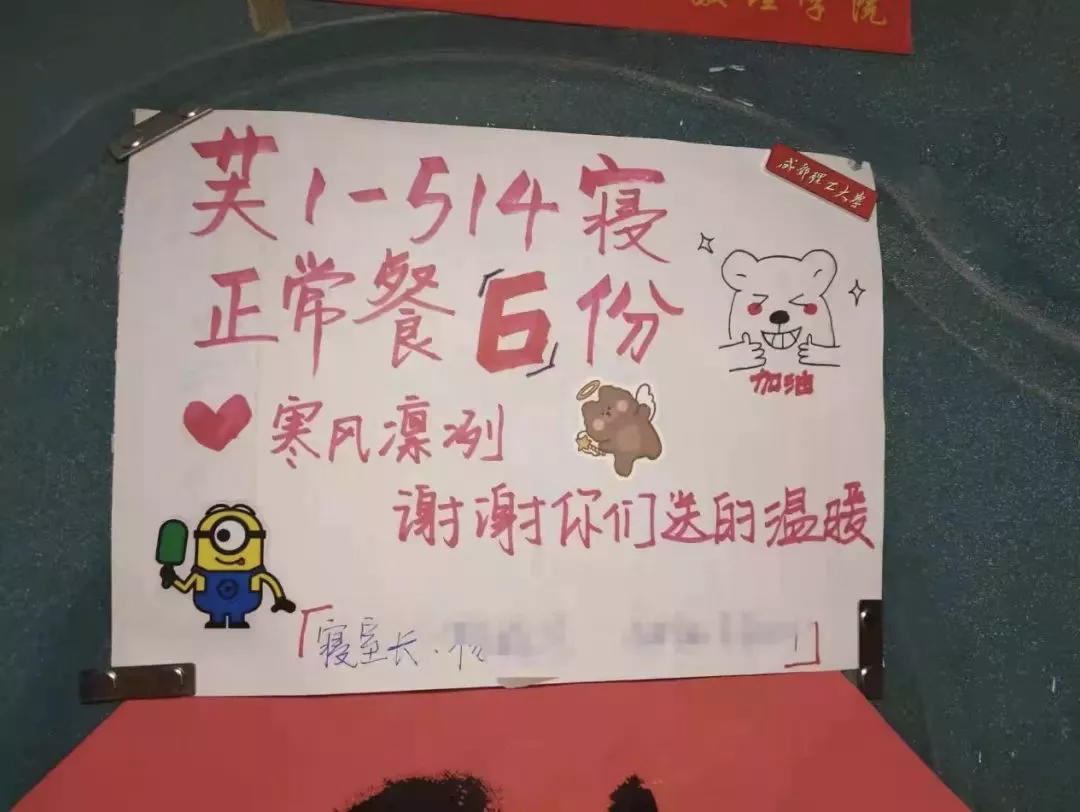 数理学院
成都理工大学
芙1-514寝
正常餐「6」份
加油
寒风凛冽
谢谢你们送的温暖
「寝室长